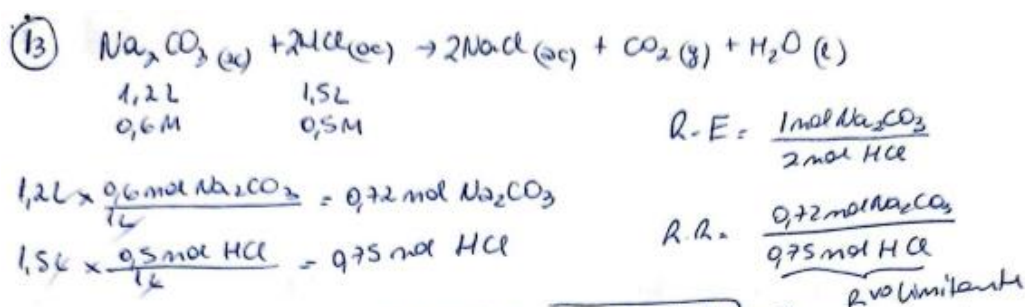 13 Na₂CO₃ (ac) + 2HCl (ac) → 2NaCl (ac) + CO₂ (g) + H₂O (l)
1,2L 1,5L
0,6M 0,5M
R.E = 1 mol Na₂CO₃ / 2 mol HCl
1,2L × 0,6 mol Na₂CO₃ / 1L = 0,72 mol Na₂CO₃
1,5L × 0,5 mol HCl / 1L = 0,75 mol HCl
R.R. = 0,72 mol Na₂CO₃ / 0,75 mol HCl
Rvo limitante